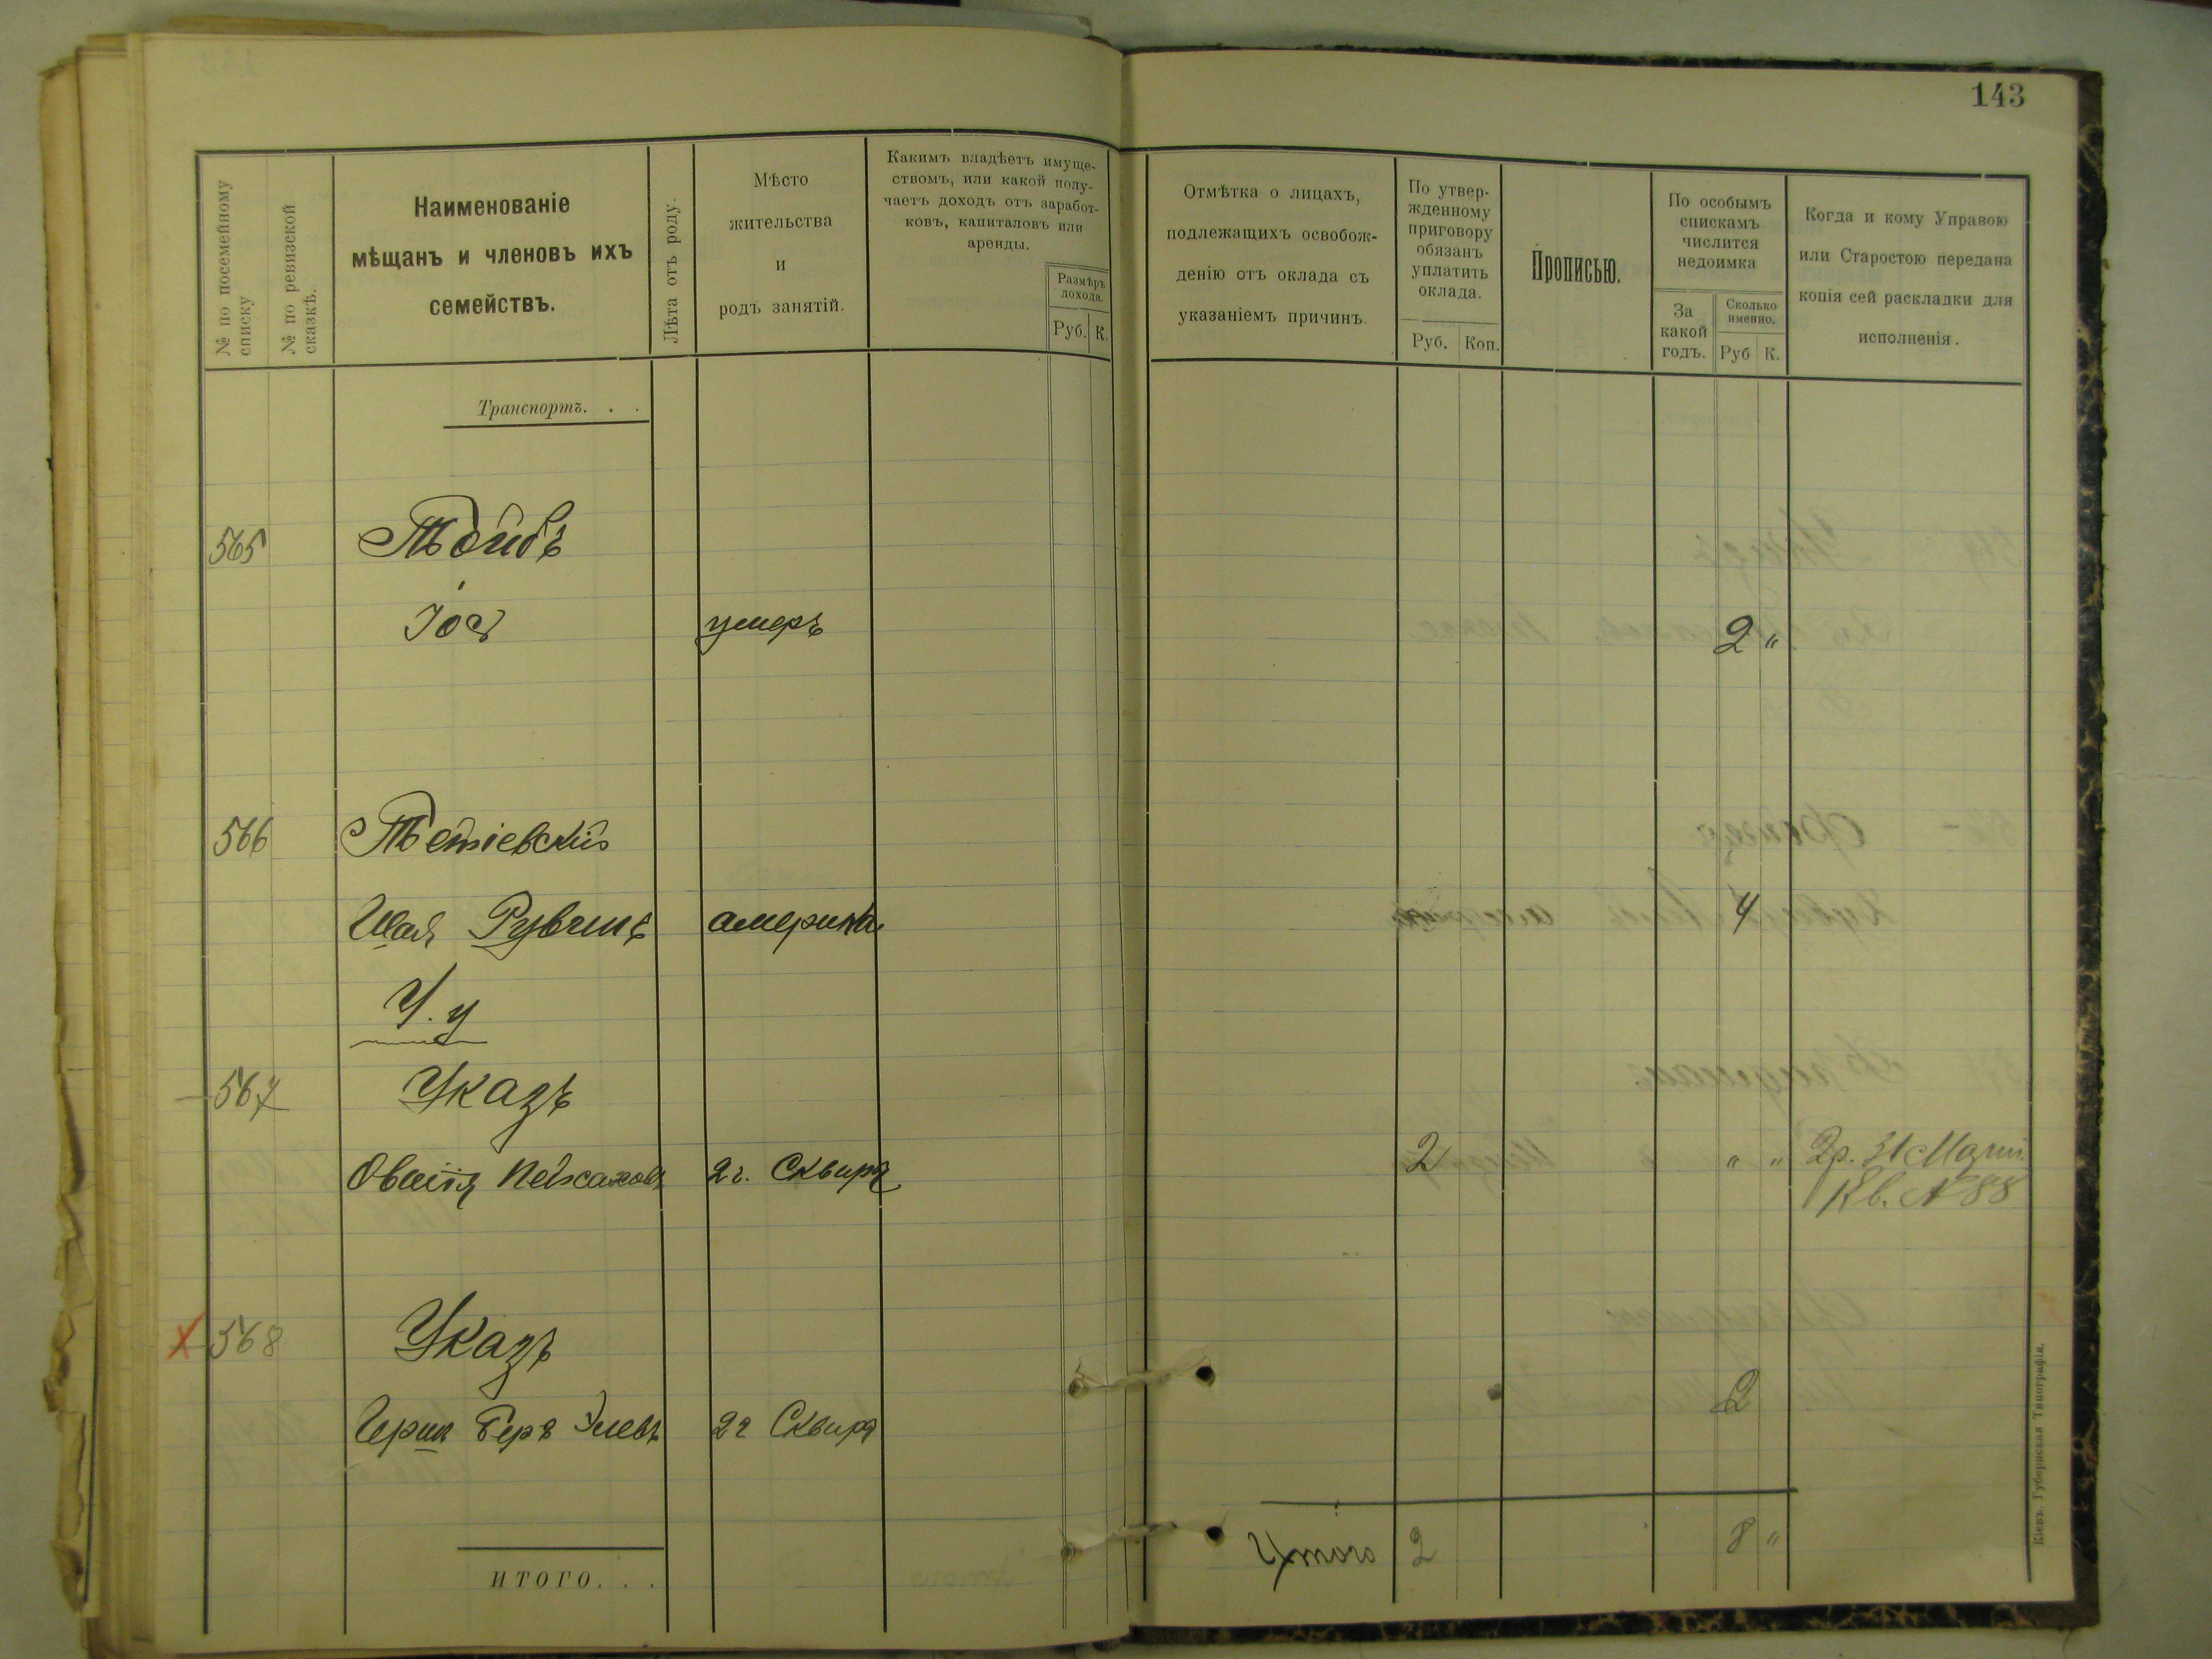 143
№ по посемейному списку
№ по ревизской сказкѣ.
Наименованіе
мѣщанъ и членовъ ихъ
семействъ.
Лѣта отъ роду.
Мѣсто
жительства
и
родъ занятій.
Какимъ владѣетъ имуще-
ствомъ, или какой полу-
чаетъ доходъ отъ заработ-
ковъ, капиталовъ или
аренды.
Размѣръ
дохода.
Руб. К.
Отмѣтка о лицахъ,
подлежащихъ освобож-
денію отъ оклада съ
указаніемъ причинъ.
По утвер-
жденному
приговору
обязанъ
уплатить
оклада.
Руб. Коп.
Прописью.
По особымъ
спискамъ
числится
недоимка
За
какой
годъ.
Сколько
именно.
Руб К.
Когда и кому Управою
или Старостою передана
копія сей раскладки для
исполненія.
Транспортъ. . .
565
Іос умеръ 2 "
566 Тетіевскій
Шая Рувинъ америка 4
У. у
567 Указъ
Овшія Пейсахов 2 г. Сквира 2 " " 2р. 31
Кв. № 88
568 Указъ
Герш Беръ 2 г Сквира 2
ИТОГО. . .
Итого 2 8 "
Кіевъ. Губернская Типографія.